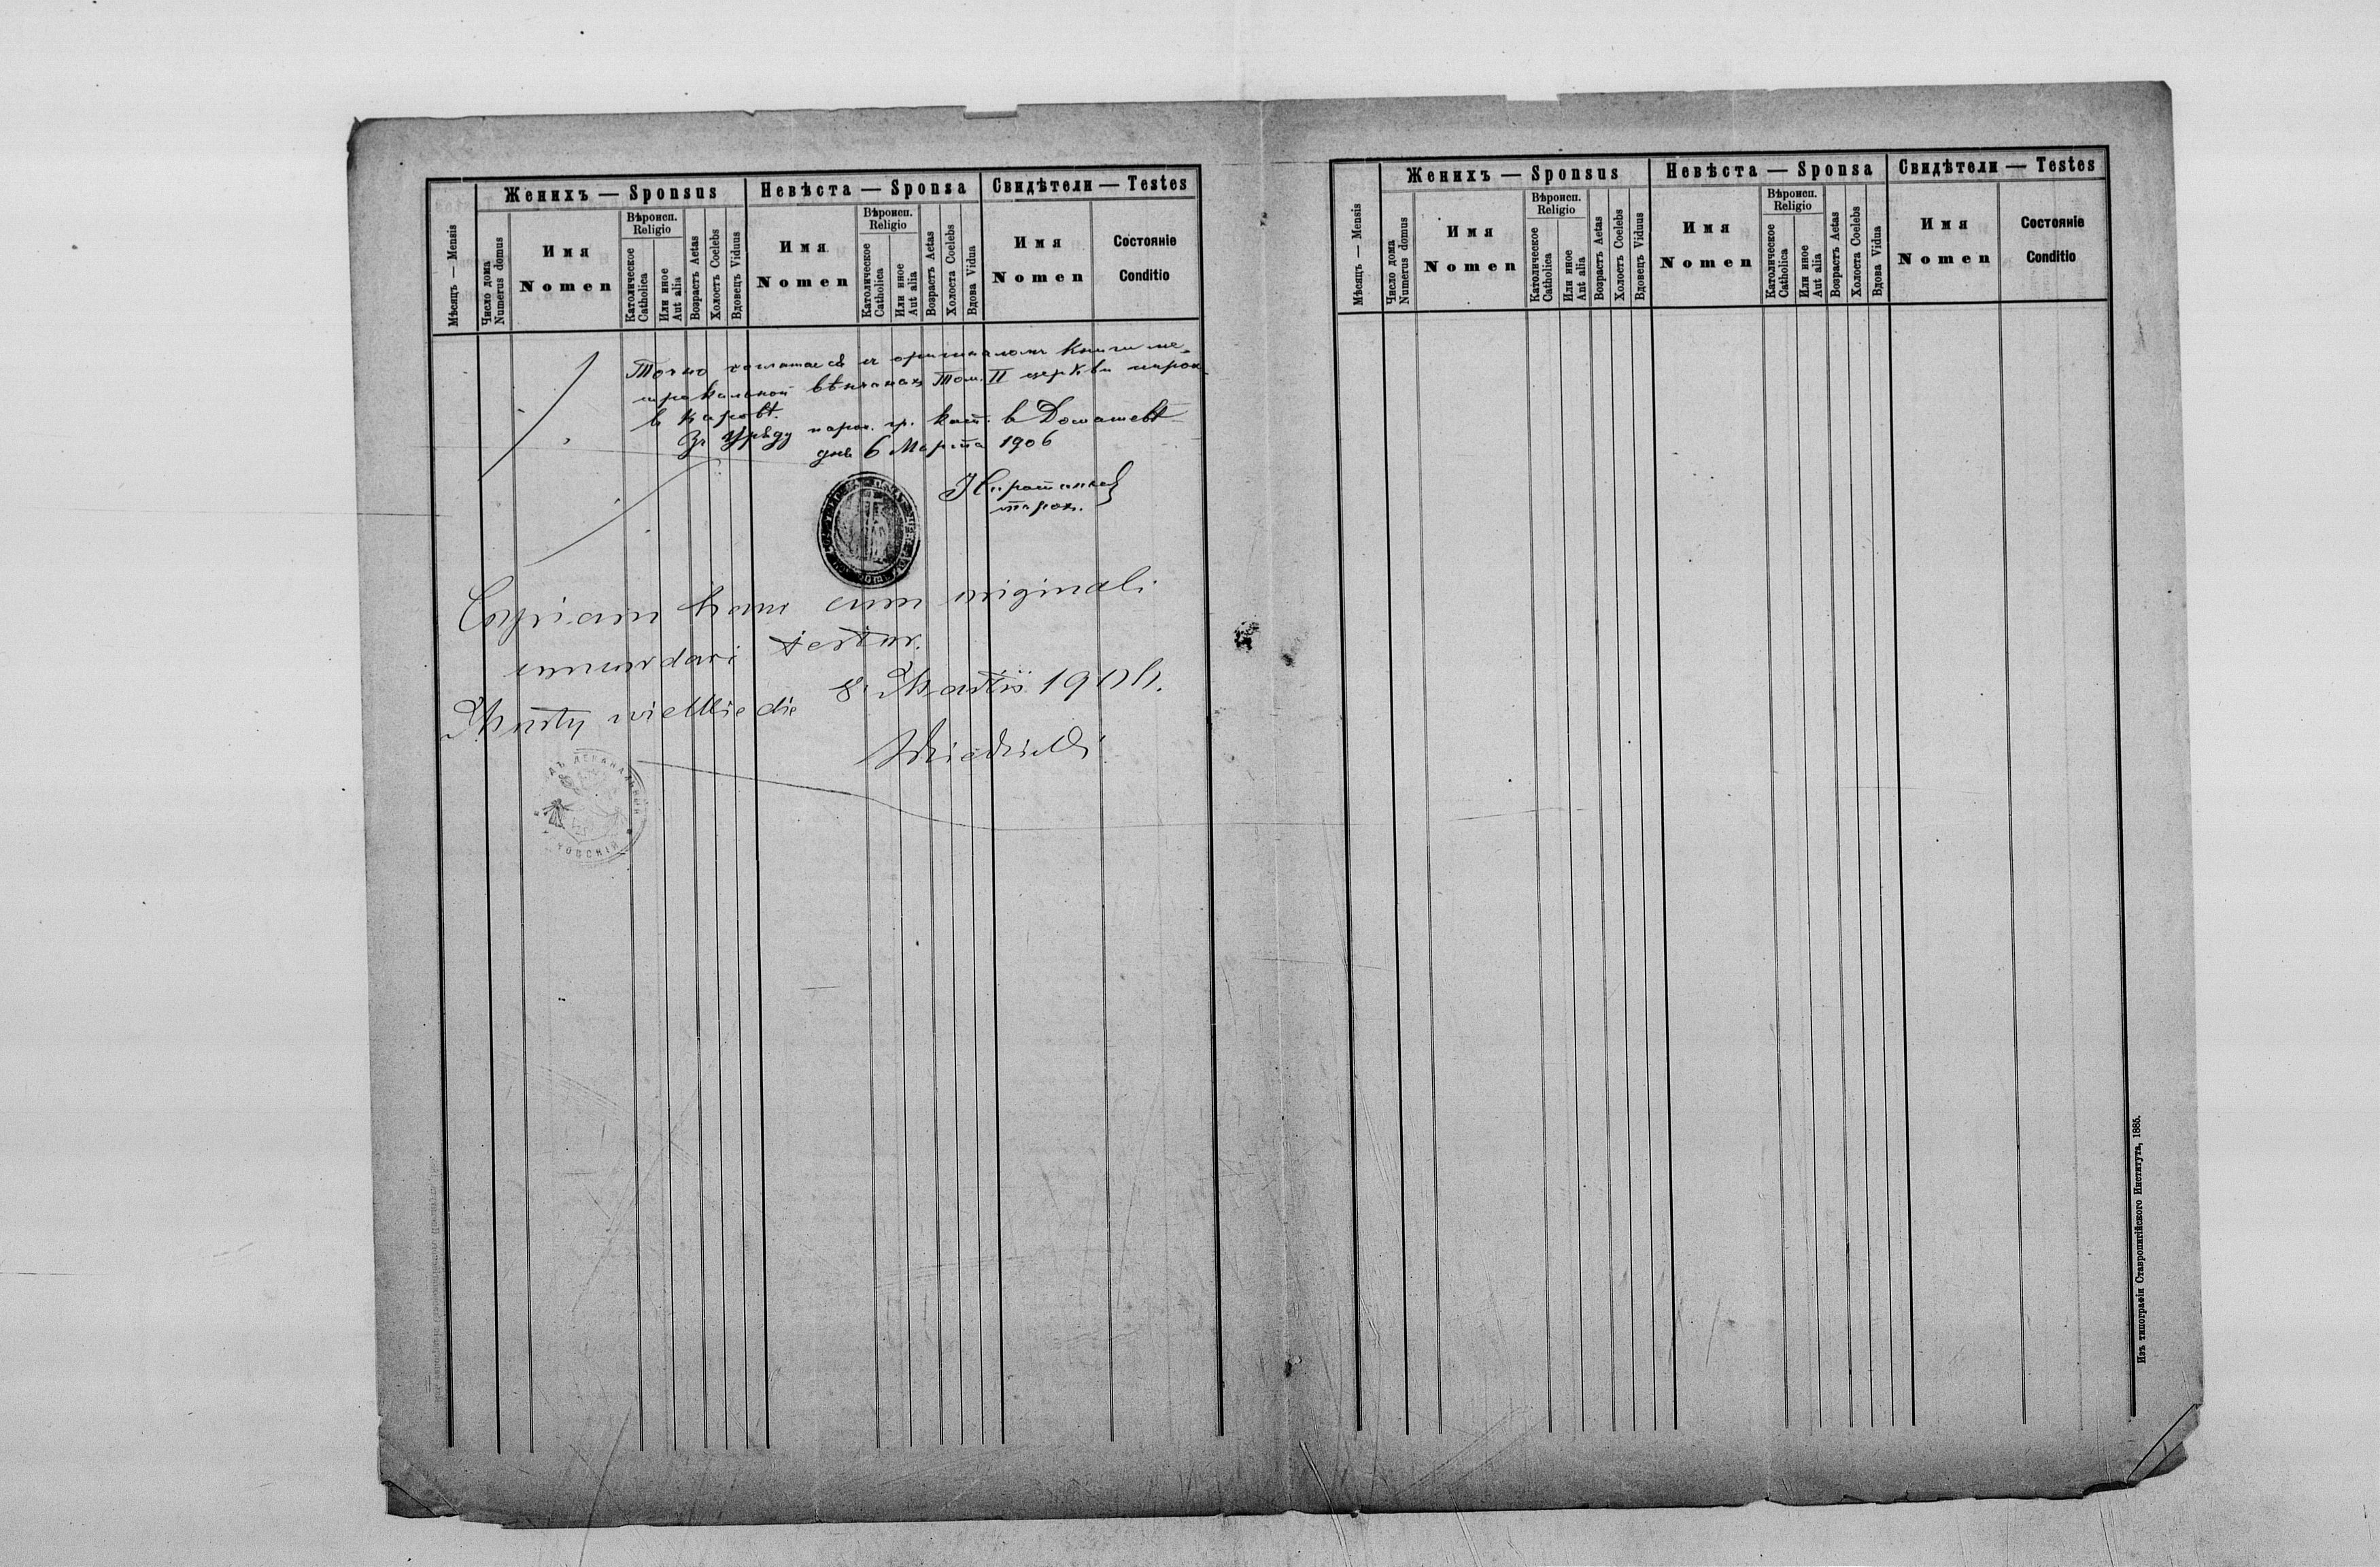 Женихъ — Sponsus
Невѣста — Sponsa
Свидѣтели — Testes
Мѣсяцъ — Mensis
Число дома
Numerus domus
Имя
Nomen
Вѣроисп.
Religio
Католическое
Catholica
Или иное
Aut alia
Возрастъ Aetas
Холостъ Coelebs
Вдовецъ Viduus
Имя
Nomen
Вѣроисп.
Religio
Католическое
Catholica
Или иное
Aut alia
Возрастъ Aetas
Холоста Coelebs
Вдова Vidua
Имя
Nomen
Состояніе
Conditio
Точно съ оригиналомъ книги ме-
трикальной вѣнчаных Том. II церкви
в Каровѣ.
Зъ Уряду парох. гр. кат. в Домашевѣ
днѣ 6 Марта 1906
парох.
Copiam hanc cum originali
concordari testor.
Mosty wielkie die 8. Martii 1906.
Женихъ — Sponsus
Невѣста — Sponsa
Свидѣтели — Testes
Мѣсяцъ — Mensis
Число дома
Numerus domus
Имя
Nomen
Вѣроисп.
Religio
Католическое
Catholica
Или иное
Aut alia
Возрастъ Aetas
Холостъ Coelebs
Вдовецъ Viduus
Имя
Nomen
Вѣроисп.
Religio
Католическое
Catholica
Или иное
Aut alia
Возрастъ Aetas
Холоста Coelebs
Вдова Vidua
Имя
Nomen
Состояніе
Conditio
Изъ типографіи Ставропигійского Института, 1885.